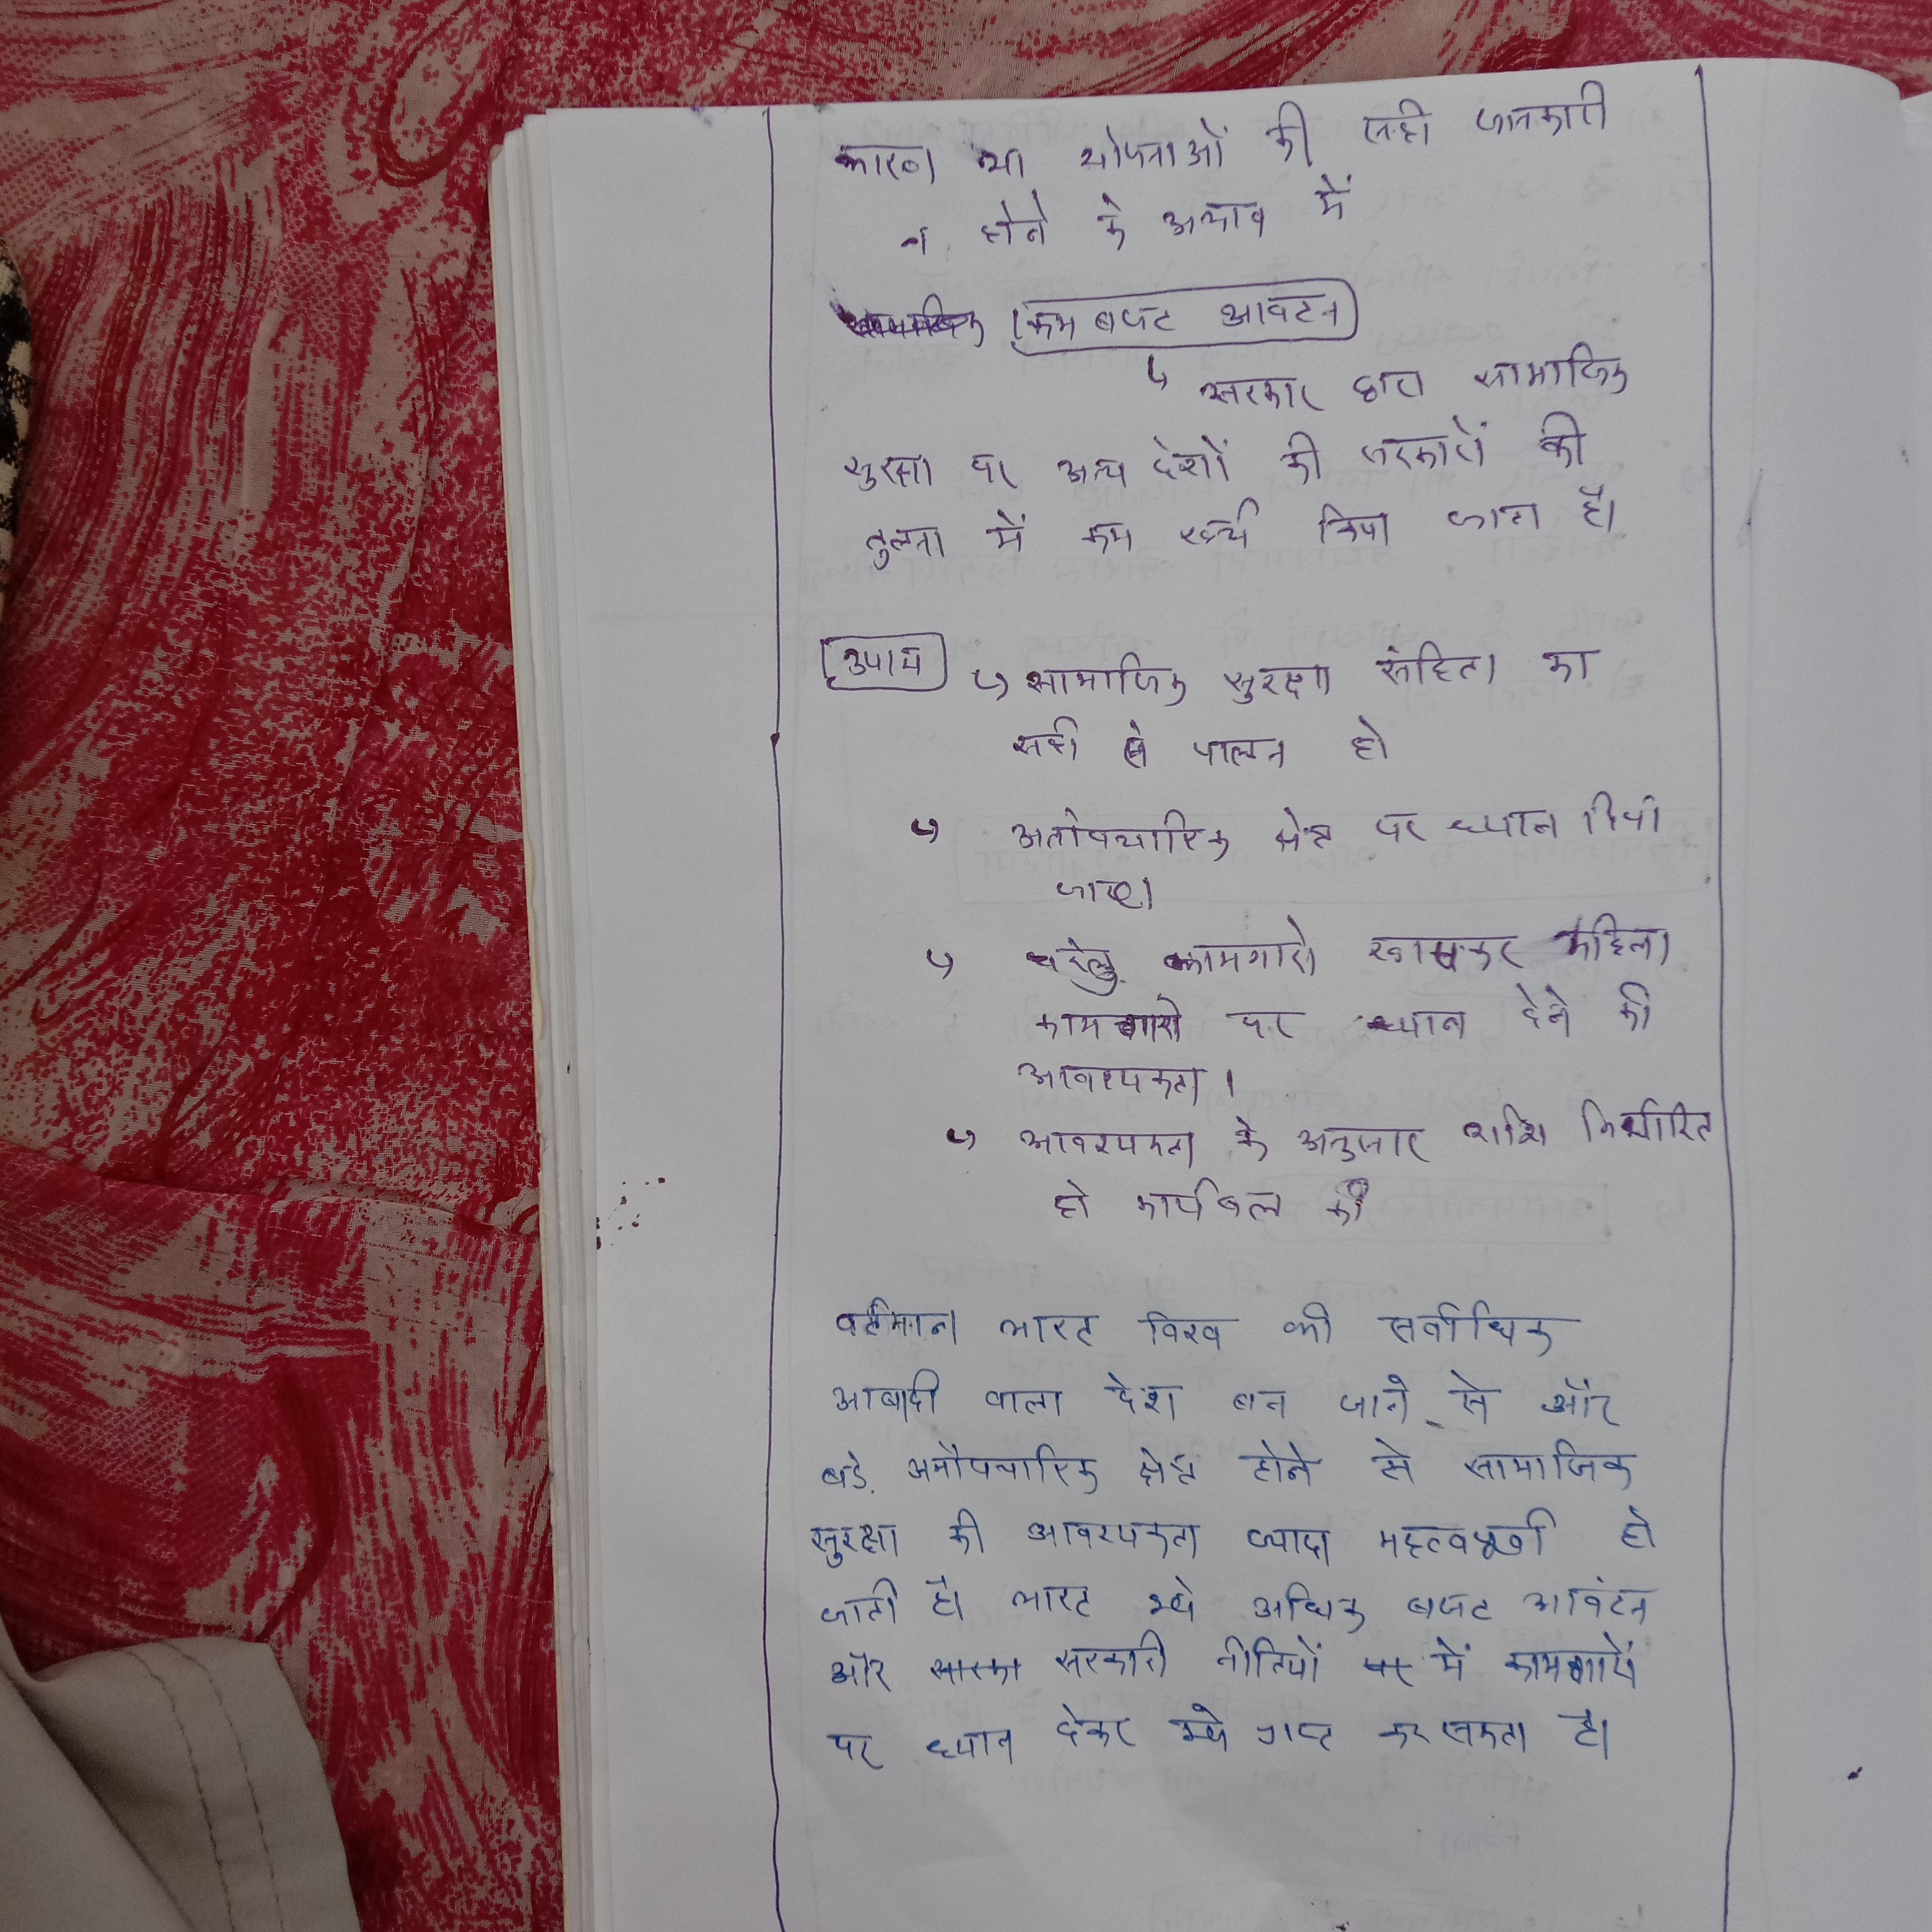 कारण या योजनाओं की सही जानकारी
न होने के अभाव में
कम बजट आवटन
↳ सरकार द्वारा सामाजिक
सुरक्षा पर अन्य देशों की सरकारों की
तुलना में कम खर्च किया जाता है।
उपाय ↳ सामाजिक सुरक्षा संहिता का
सही से पालन हो
↳ अनोपचारिक क्षेत्र पर ध्यान दिया
जाए।
↳ घरेलु कामगारो खासकर महिला
कामगारो पर ध्यान देने की
आवश्यकता।
↳ आवश्यकता के अनुसार राशि निर्धारित
हो कार्यबल की
वर्तमान भारत विश्व की सर्वाधिक
आबादी वाला देश बन जाने से और
बडे अनौपचारिक क्षेत्र होने से सामाजिक
सुरक्षा की आवश्यकता ज्यादा महत्वपूर्ण हो
जाती है। भारत इसे अधिक बजट आवंटन
और सरकारी नीतियों में कामगारों
पर ध्यान देकर इसे प्राप्त कर सकता है।